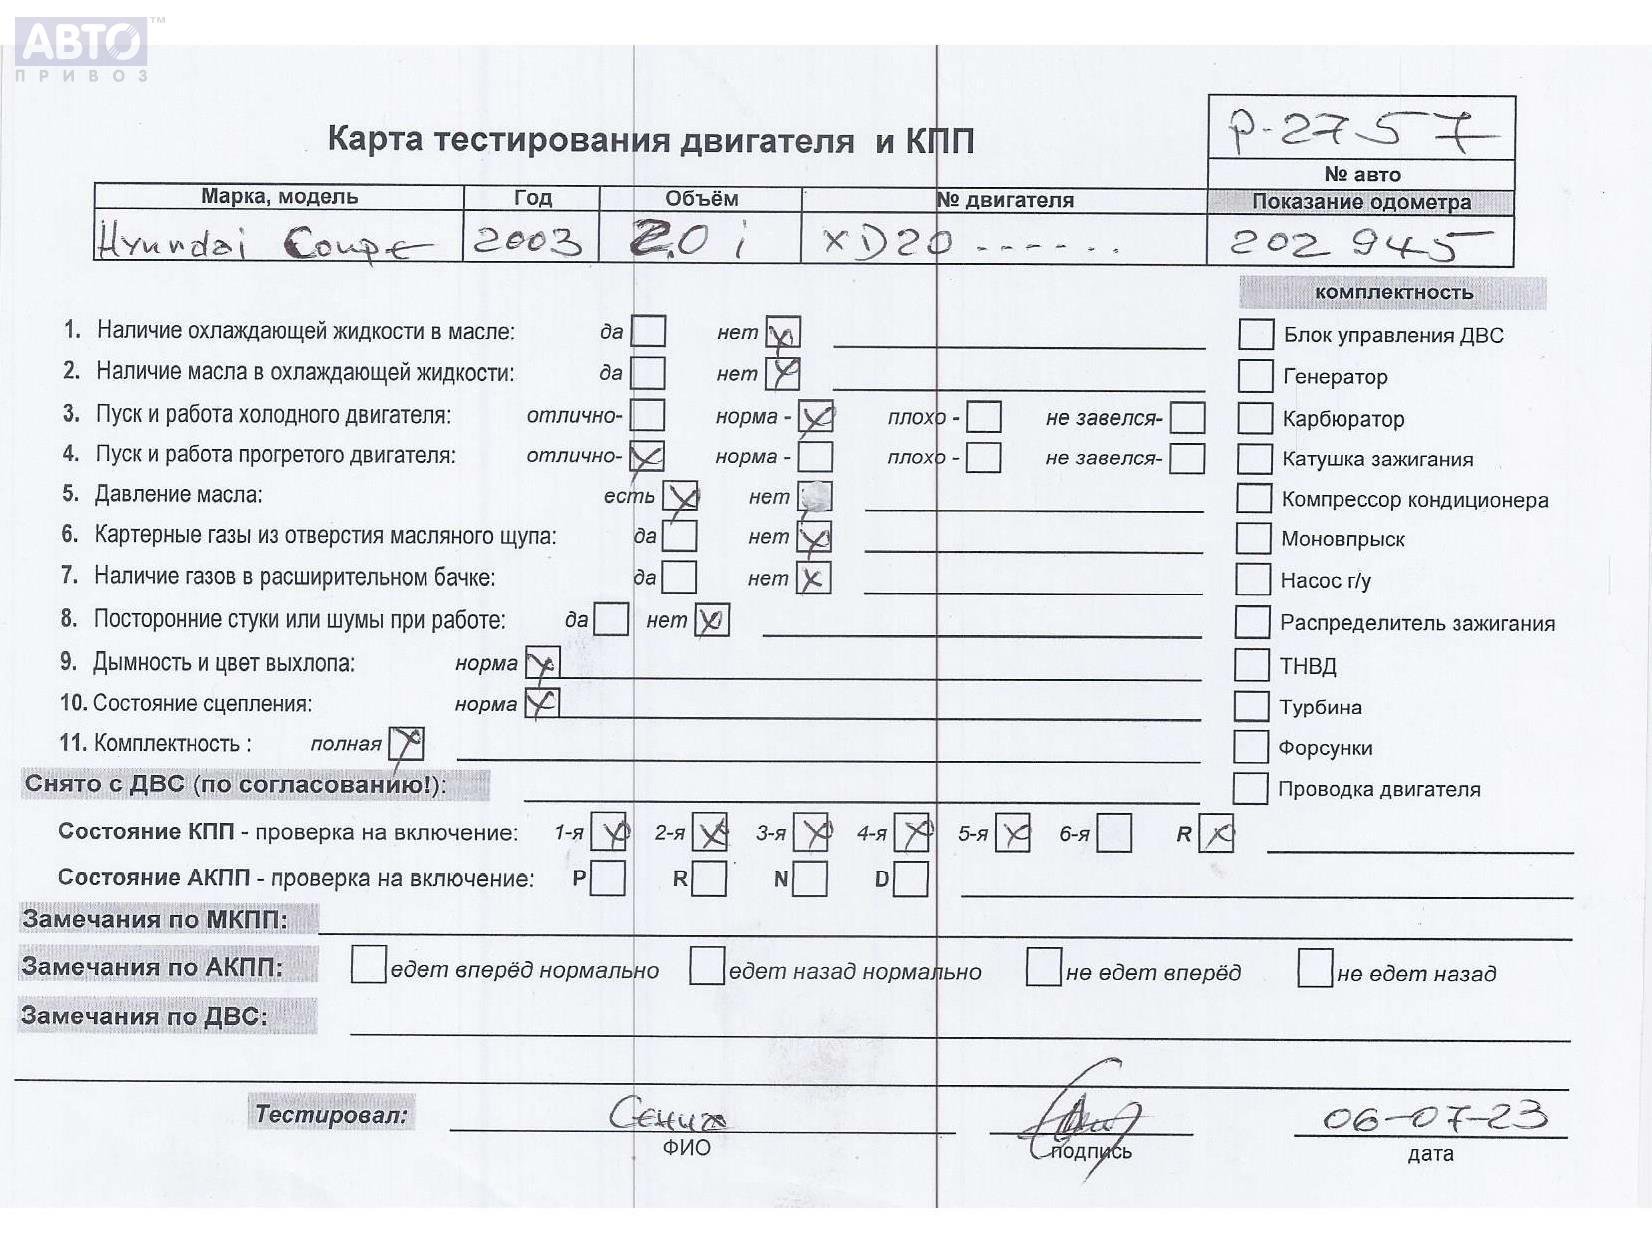 АВТО™
ПРИВОЗ
Р-2757
Карта тестирования двигателя и КПП
№ авто
Марка, модель Год Объём № двигателя Показание одометра
Hyundai Coupe 2003 2.0 i XD20 ------ 202 945
комплектность
1. Наличие охлаждающей жидкости в масле: да нет Блок управления ДВС
2. Наличие масла в охлаждающей жидкости: да нет Генератор
3. Пуск и работа холодного двигателя: отлично- норма - плохо - не завелся- Карбюратор
4. Пуск и работа прогретого двигателя: отлично- норма - плохо - не завелся- Катушка зажигания
5. Давление масла: есть нет Компрессор кондиционера
6. Картерные газы из отверстия масляного щупа: да нет Моновпрыск
7. Наличие газов в расширительном бачке: да нет Насос г/у
8. Посторонние стуки или шумы при работе: да нет Распределитель зажигания
9. Дымность и цвет выхлопа: норма ТНВД
10. Состояние сцепления: норма Турбина
11. Комплектность : полная Форсунки
Снято с ДВС (по согласованию!): Проводка двигателя
Состояние КПП - проверка на включение: 1-я 2-я 3-я 4-я 5-я 6-я R
Состояние АКПП - проверка на включение: P R N D
Замечания по МКПП:
Замечания по АКПП: едет вперёд нормально едет назад нормально не едет вперёд не едет назад
Замечания по ДВС:
Тестировал: 06-07-23
ФИО подпись дата